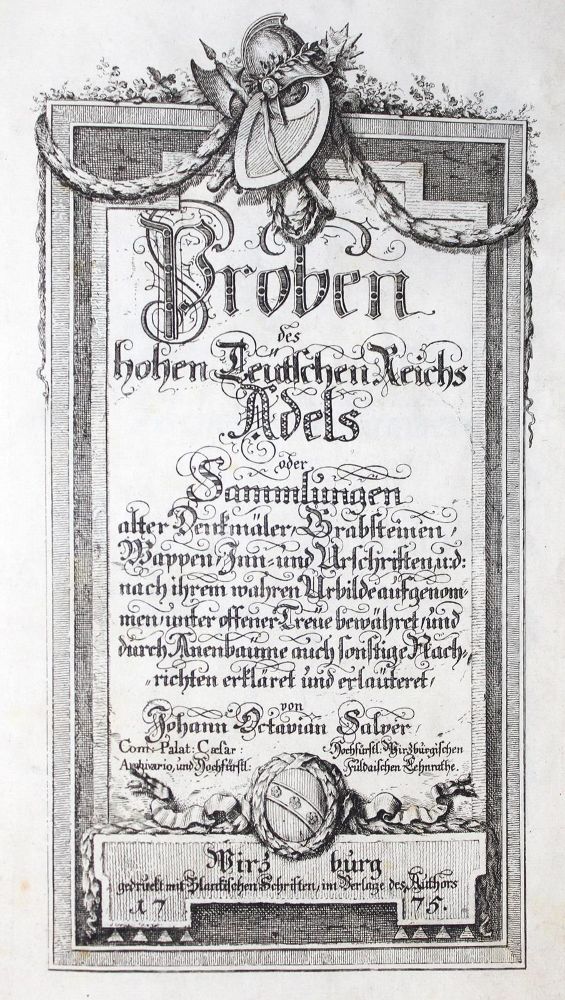 Proben
des
hohen Teütschen Reichs
Adels
oder
Sammlüngen
alter Denkmäler, Grabsteinen,
Wappen, Inn- und Urschriften, u: d:
nach ihrem wahren Urbilde aufgenom-
men, unter offener Treüe bewähret, und
durch Anenbäume auch sonstige Nach-
-richten erkläret und erlaüteret,
von
Johann Octavian Salver,
Com: Palat: Cæsar: Hochfürstl. Wirzburgischen
Archivario, und Hochfürstl: Fuldaischen Lehnrathe.
Wirz burg
gedruckt mit Blankischen Schriften, im Verlage des Authors
17 75.